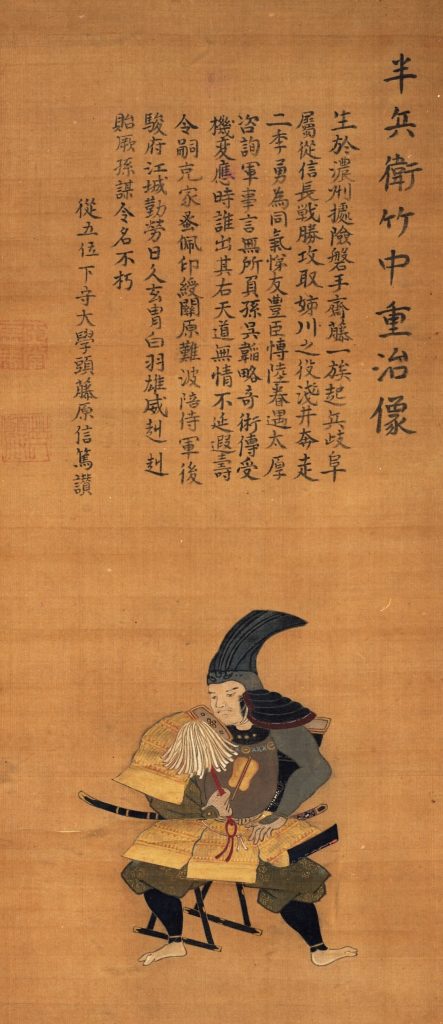 半兵衛竹中重治像
生於濃州據險磐手齋藤一族起兵岐阜
屬從信長戰勝攻取姊川之役淺井奔走
二季勇為同氣悌友豊臣傳陸春遇太厚
咨詢軍事言無所負孫呉韜略奇術傳受
機変應時誰出其右天道無情不延遐壽
令嗣克家蚤佩印綬關原難波陪侍軍後
駿府江城勤勞日久玄冑白羽雄威赳赳
貽厥孫謀令名不朽
從五位下守大學頭藤原信篤讃